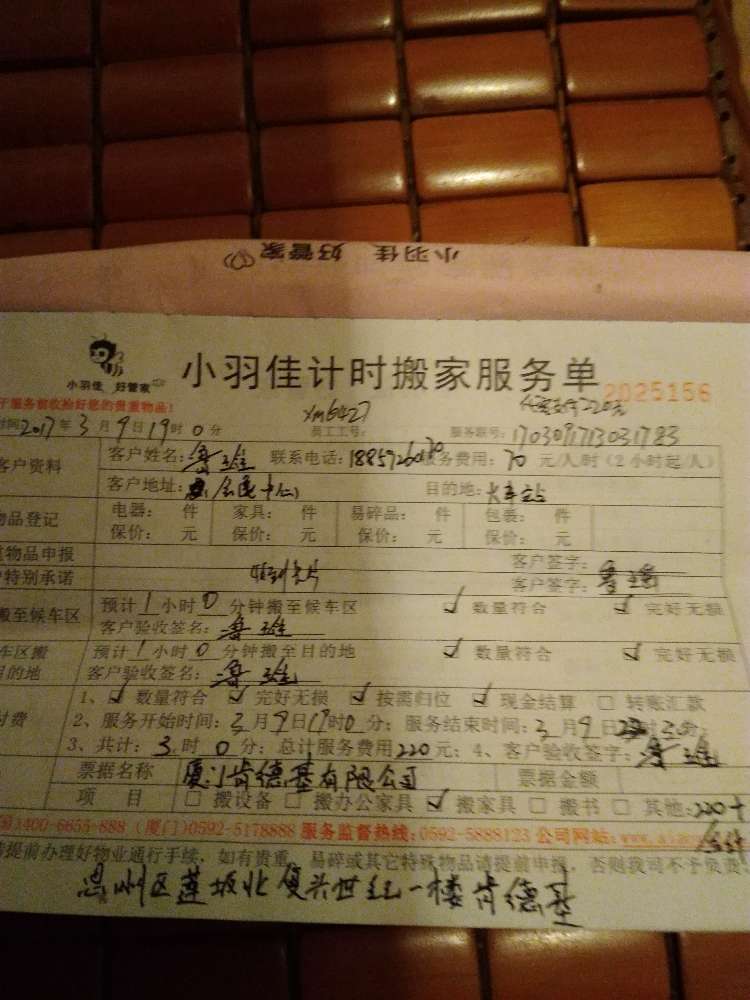 小羽佳 好管家
小羽佳 好管家
小羽佳计时搬家服务单
2025156
服务前收拾好您的贵重物品!
xm6427
时间2017年3月9日19时0分 员工工号: 服务联号:1703091713031783
客户资料 客户姓名: 联系电话: 服务费用:70元/人/时(2小时起/人)
客户地址: 目的地:火车站
物品登记 电器: 件 家具: 件 易碎品: 件 包装: 件
保价: 元 保价: 元 保价: 元 保价: 元
物品申报 客户签字:
特别承诺 客户签字:
搬至候车区 预计1小时0分钟搬至候车区 ✓数量符合 ✓完好无损
客户验收签名:
车区搬 预计1小时0分钟搬至目的地 ✓数量符合 ✓完好无损
目的地 客户验收签名:
付费 1、✓数量符合 ✓完好无损 ✓按类归位 ✓现金结算 □转账汇款
2、服务开始时间:3月9日19时0分;服务结束时间:3月9日
3、共计:3时0分;总计服务费用220元;4、客户验收签字:
票据名称 厦门肯德基有限公司 票据金额
项 目 □搬设备 □搬办公家具 ✓搬家具 □搬书 □其他:220
400-6655-888 (厦门)0592-5178888 服务监督热线:0592-5888123 公司网站:
请提前办理好物业通行手续,如有贵重、易碎或其它特殊物品请提前申报,否则我司不予负责
思州区莲坂北复兴世纪一楼肯德基